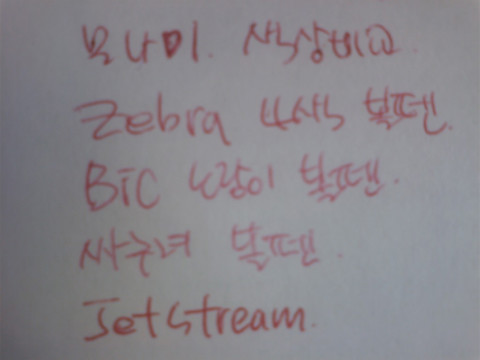 모나미. 색상비교
Zebra 4색 볼펜.
BIC 노랑이 볼펜.
싸쿠라 볼펜.
Jetstream.